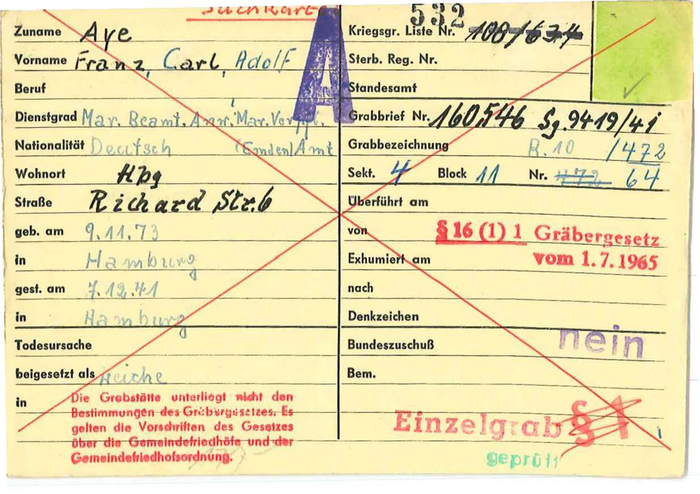 Suchkarte
Zuname Aye
Vorname Franz, Carl, Adolf
Beruf
Dienstgrad Mar. Beamt. Anw. Mar. Verpfl.
Nationalität Deutsch (Emden) Amt
Wohnort Hbg
Straße Richard Str. 6
geb. am 9.11.73
in Hamburg
gest. am 7.12.41
in Hamburg
Todesursache
beigesetzt als Leiche
in
Die Grabstätte unterliegt nicht den
Bestimmungen des Gräbergesetzes. Es
gelten die Vorschriften des Gesetzes
über die Gemeindefriedhöfe und der
Gemeindefriedhofsordnung.
A
532
Kriegsgr. Liste Nr. 108/634
Sterb. Reg. Nr.
Standesamt
Grabbrief Nr. 160546 Sg. 9419/41
Grabbezeichnung R. 10 /472
Sekt. 4 Block 11 Nr. 472 64
Überführt am
von § 16 (1) 1 Gräbergesetz
Exhumiert am vom 1.7.1965
nach
Denkzeichen
Bundeszuschuß nein
Bem.
Einzelgrab § 1
geprüft